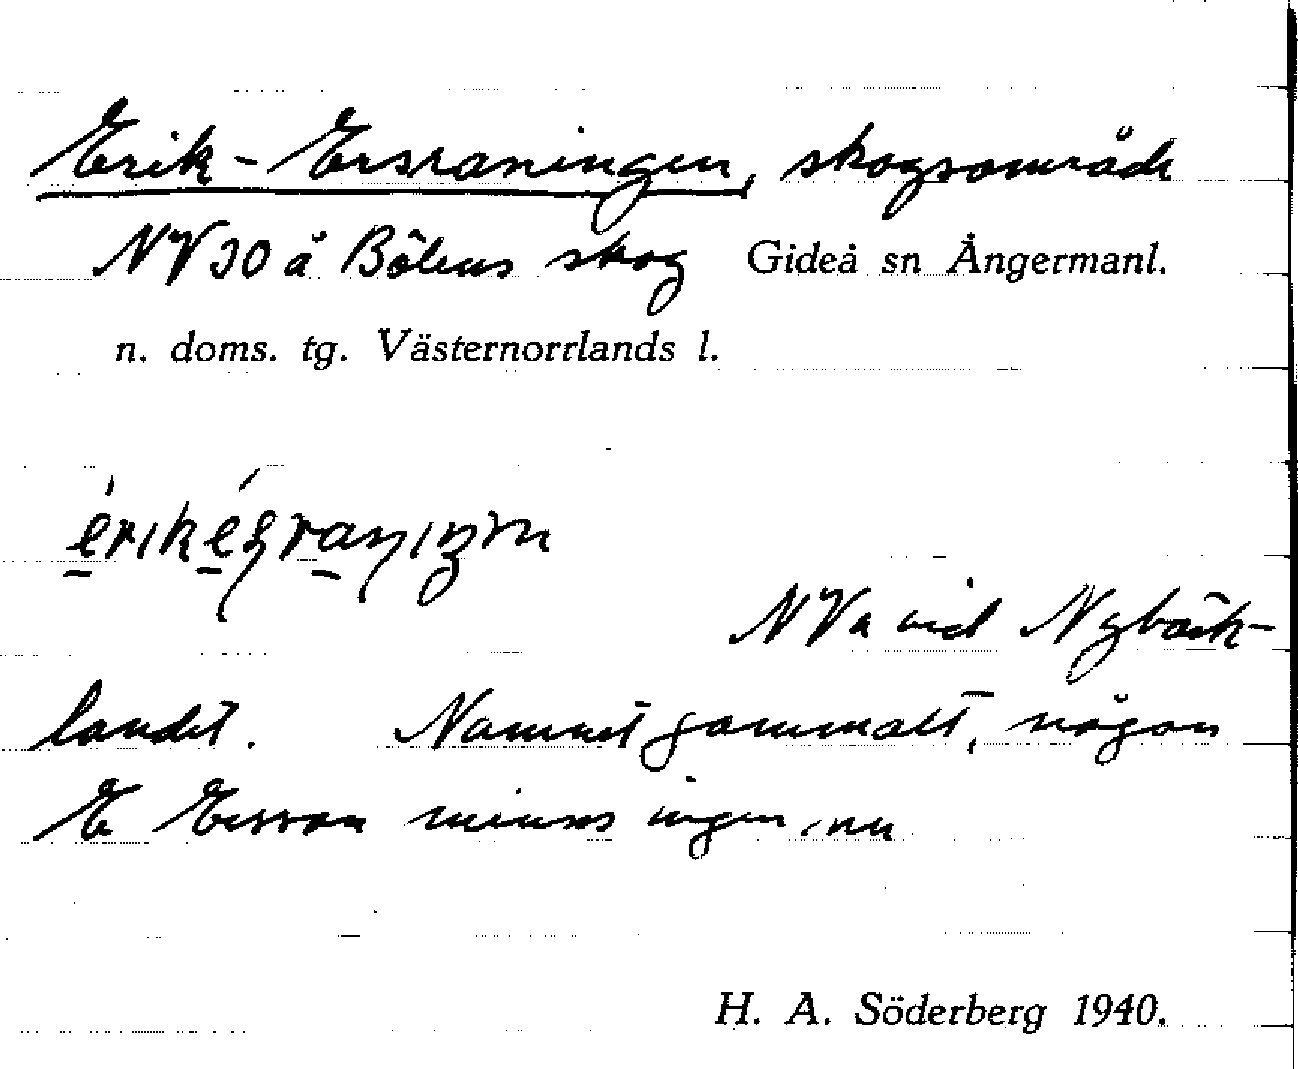 Erik-Ersraningen, skogsområde
NV30 å Bölens skog Gideå sn Ångermanl.
n. doms. tg. Västernorrlands l.
NVa vid Nybäck-
landet. Namnet gammalt, någon
E Ersson minns ingen nu
H. A. Söderberg 1940.